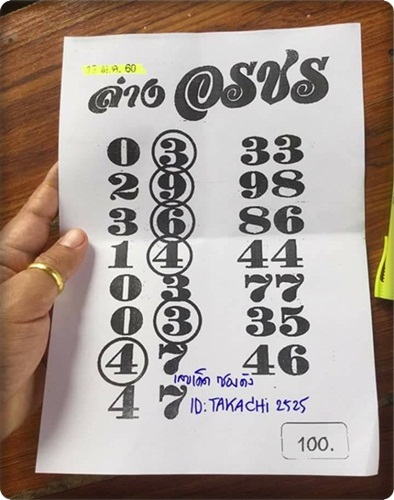 ม.ค. 60
ล่าง อรชร
0 3 33
2 9 98
3 6 86
1 4 44
0 3 77
0 3 35
4 7 46
4 7
เลขเด็ด ซองดัง
ID: TAKACHI 2525
100.